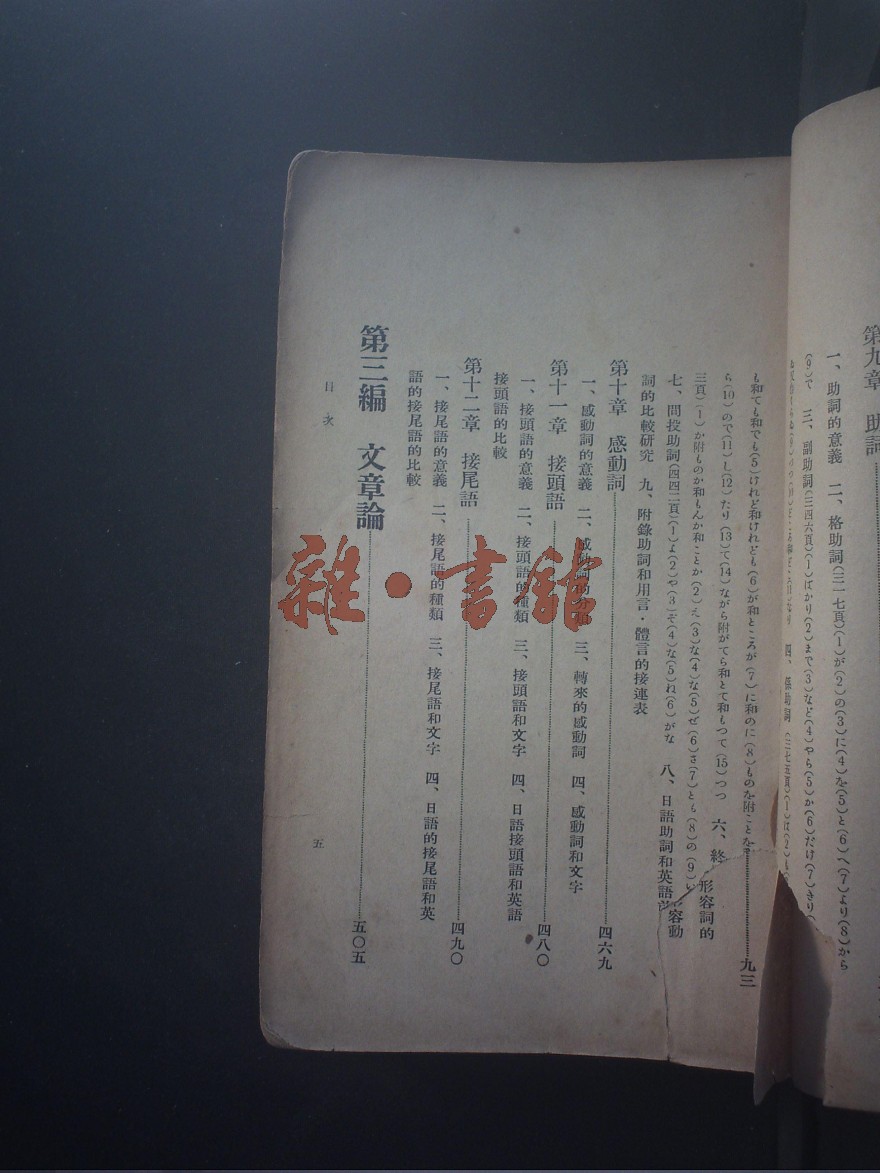 第九章 助詞
一、助詞的意義 二、格助詞(三一七頁)(1)が(2)の(3)に(4)を(5)と(6)へ(7)より(8)から
(9)で 三、副助詞(三四六頁)(1)ばかり(2)まで(3)など(4)やら(5)か(6)だけ(7)きり
四、係助詞(三七五頁)(1)は(2)も
も和ても和でも(5)けれど和けれども(6)が和ところが(7)に和のに(8)ものを附ことを
九三
ら(10)ので(11)し(12)たり(13)て(14)ながら附がてら和とて和もつて(15)つつ 六、終
三頁)(1)か附ものか和もんか和ことか(2)え(3)な(4)な(5)ぜ(6)さ(7)とも(8)の(9)い
形容詞的
七、間投助詞(四四二頁)(1)よ(2)や(3)ぞ(4)な(5)ね(6)がな 八、日語助詞和英語
容動
詞的比較研究 九、附錄助詞和用言·體言的接連表
第十章 感動詞 四六九
一、感動詞的意義 二、感動詞的分類 三、轉來的感動詞 四、感動詞和文字
第十一章 接頭語 四八〇
一、接頭語的意義 二、接頭語的種類 三、接頭語和文字 四、日語接頭語和英語
接頭語的比較
第十二章 接尾語 四九〇
一、接尾語的意義 二、接尾語的種類 三、接尾語和文字 四、日語的接尾語和英
語的接尾語的比較
第三編 文章論 五〇五
目次
五
雜·書館